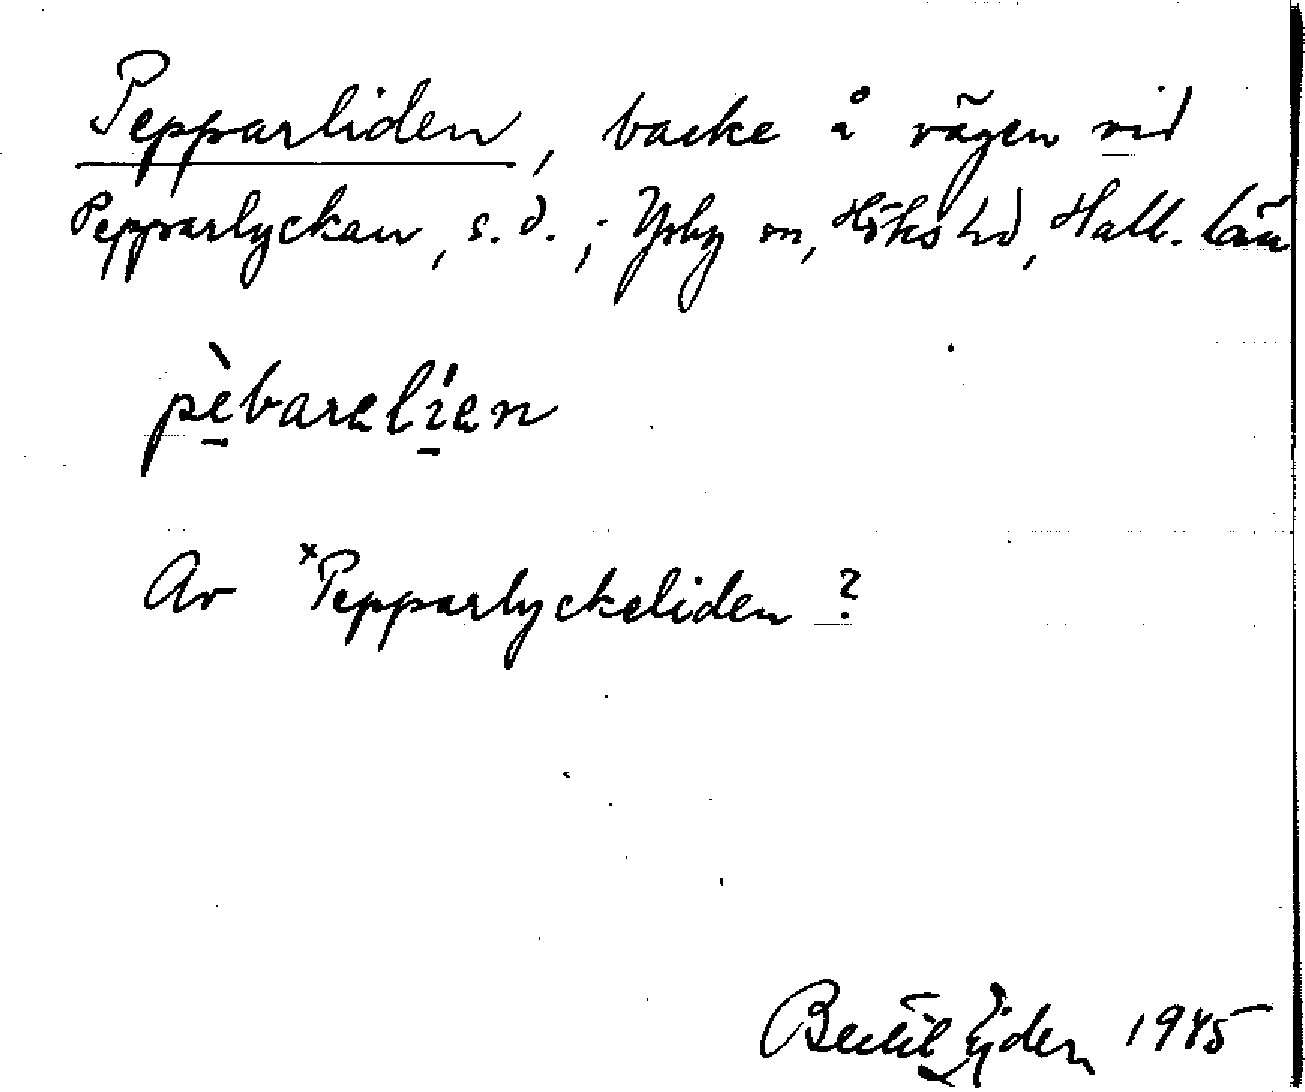 Pepparliden, backe å vägen vid
Pepparlyckan, s.d.; Ysby sn, Höks hd, Hall. län
pèbarelíen
Av ˣPepparlyckeliden?
Bertil Ejder 1945